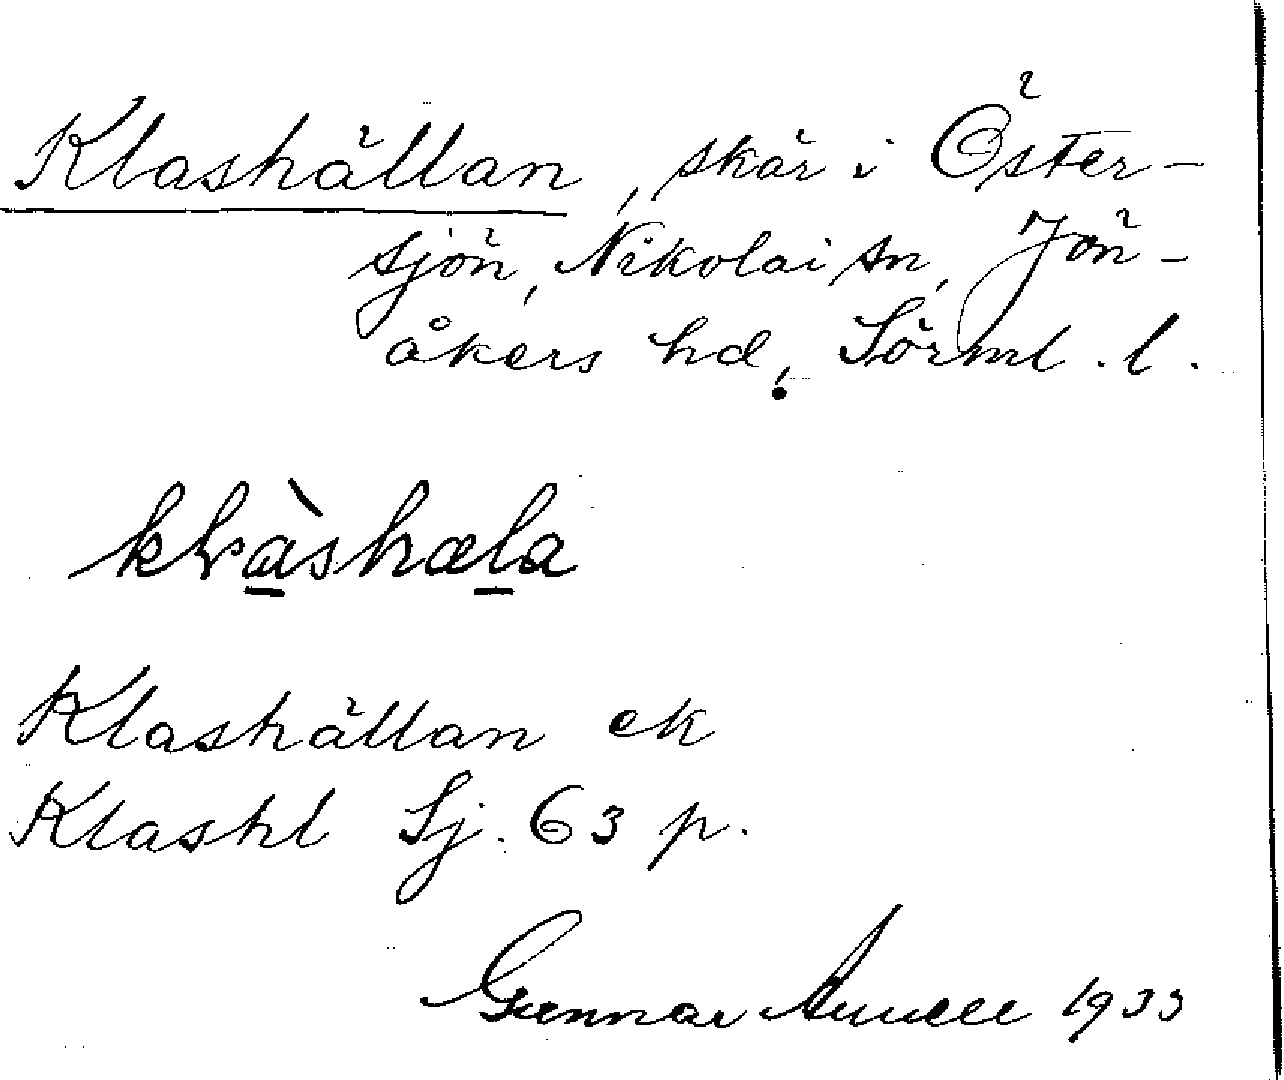 Klashällan, skär i Öster-
sjön, Nikolai sn, Jön-
åkers hd, Sörml. l.
klàshæla
Klashällan ek
Klashl Sj. 63 p.
Gunnar 1933